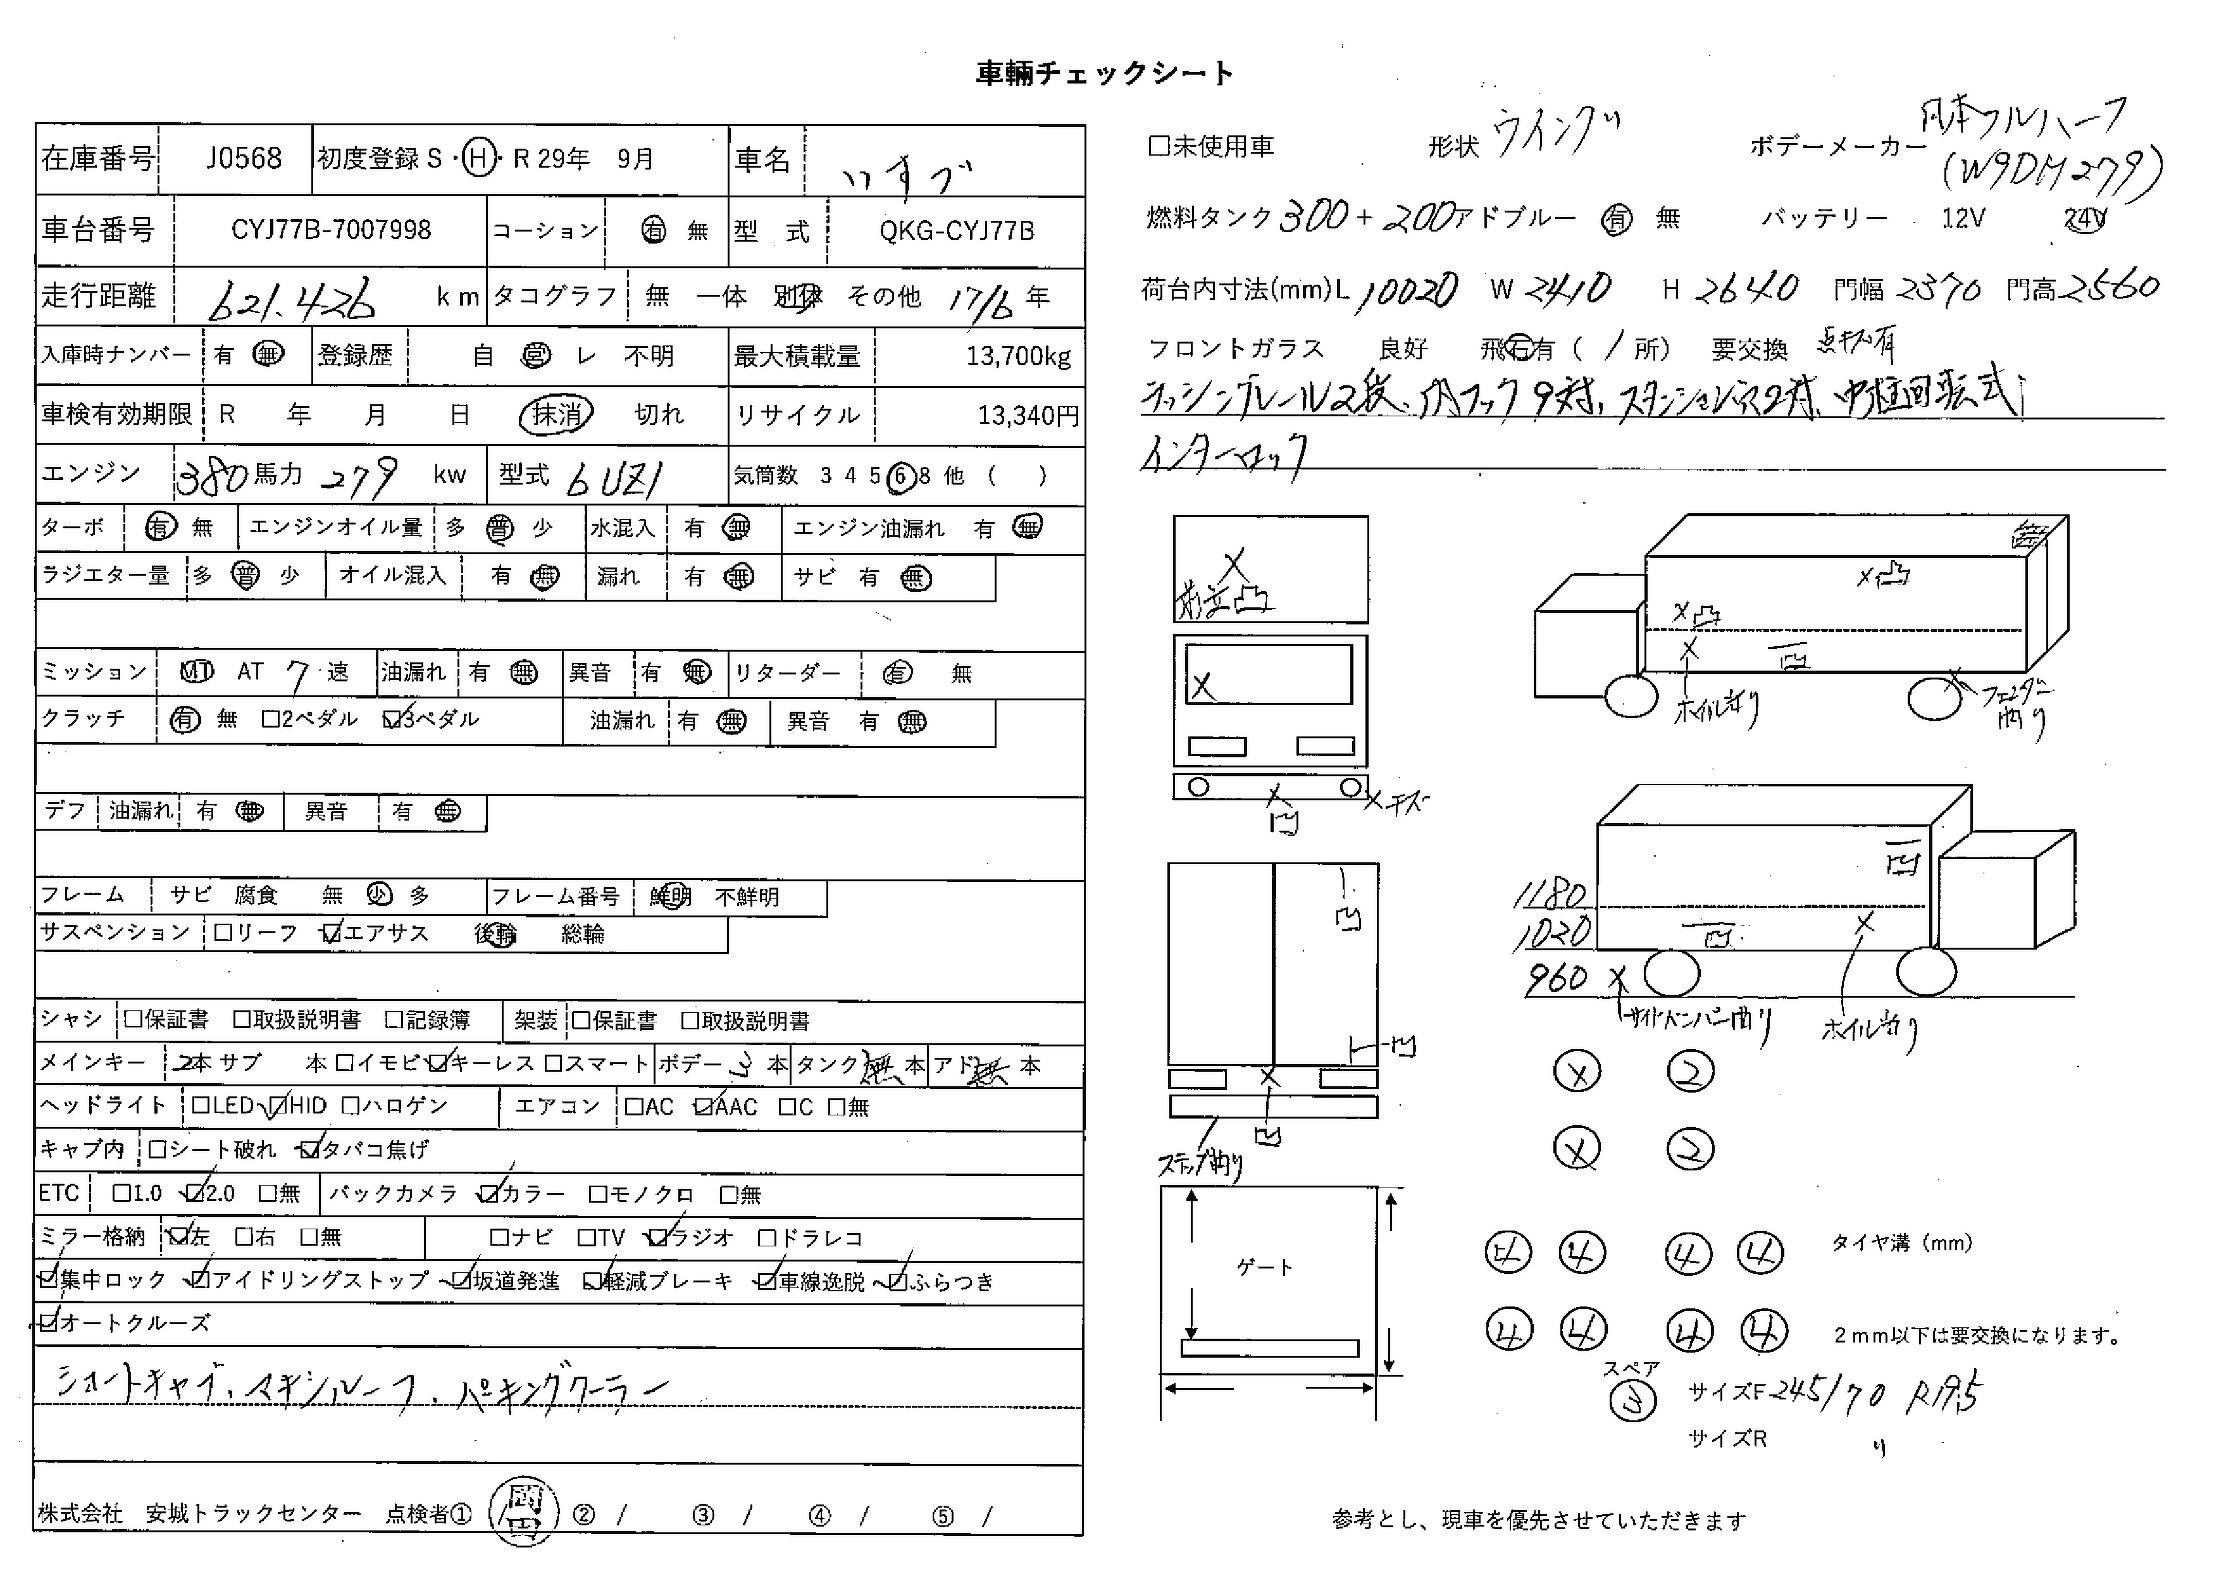 車輛チェックシート
在庫番号 J0568 初度登録 S・H・R 29年 9月 車名 いすゞ
車台番号 CYJ77B-7007998 コーション 有 無 型 式 QKG-CYJ77B
走行距離 621.426 km タコグラフ 無 一体 別体 その他 17/6 年
入庫時ナンバー 有 無 登録歴 自 営 レ 不明 最大積載量 13,700kg
車検有効期限 R 年 月 日 抹消 切れ リサイクル 13,340円
エンジン 380馬力 279 kw 型式 6UZ1 気筒数 3 4 5 6 8 他 ( )
ターボ 有 無 エンジンオイル量 多 普 少 水混入 有 無 エンジン油漏れ 有 無
ラジエター量 多 普 少 オイル混入 有 無 漏れ 有 無 サビ 有 無
ミッション MT AT 7 速 油漏れ 有 無 異音 有 無 リターダー 有 無
クラッチ 有 無 □2ペダル ☑3ペダル 油漏れ 有 無 異音 有 無
デフ 油漏れ 有 無 異音 有 無
フレーム サビ 腐食 無 少 多 フレーム番号 鮮明 不鮮明
サスペンション □リーフ ☑エアサス 後輪 総輪
シャシ □保証書 □取扱説明書 □記録簿 架装 □保証書 □取扱説明書
メインキー 2本 サブ 本 □イモビ ☑キーレス □スマート ボデー 3 本 タンク 無 本 アド 無 本
ヘッドライト □LED ☑HID □ハロゲン エアコン □AC ☑AAC □C □無
キャブ内 □シート破れ ☑タバコ焦げ
ETC □1.0 ☑2.0 □無 バックカメラ ☑カラー □モノクロ □無
ミラー格納 ☑左 □右 □無 □ナビ □TV ☑ラジオ □ドラレコ
☑集中ロック ☑アイドリングストップ ☑坂道発進 ☑軽減ブレーキ ☑車線逸脱 ☑ふらつき
☑オートクルーズ
ショートキャブ、マキシルーフ、パーキングクーラー
株式会社 安城トラックセンター 点検者① / 岡田 ② / ③ / ④ / ⑤ /
□未使用車 形状 ウイング ボデーメーカー 日本フルハーフ
(W9DM279)
燃料タンク 300+200 アドブルー 有 無 バッテリー 12V 24V
荷台内寸法(mm) L 10020 W 2410 H 2640 門幅 2370 門高 2560
フロントガラス 良好 飛石有 ( / 所) 要交換 点キズ有
ラッシングレール2段、内フック9対、スタンション穴2対、中柱回転式
インターロック
X
前立凸
X
X
凹
Xキズ
X凸
X凸
X
凹
ホイル当り
X
フェンダー
曲り
凹
凹
凹
X
1180
1020
960 X
サイドバンパー曲り
ホイル当り
凹
凹
X
凹
ステップ曲り
ゲート
X 2
X 2
4 4 4 4 タイヤ溝(mm)
4 4 4 4 2mm以下は要交換になります。
スペア
3
サイズF 245/70 R19.5
サイズR 〃
参考とし、現車を優先させていただきます